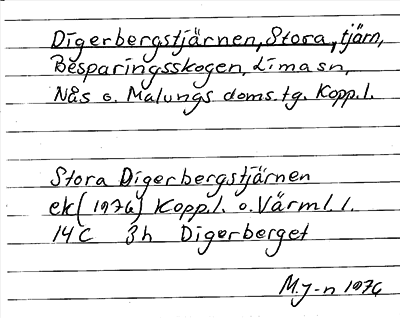 Digerbergstjärnen, Stora, tjärn,
Besparingsskogen, Lima sn,
Nås o. Malungs doms. tg. Kopp. l.
Stora Digerbergstjärnen
ek (1976) Kopp. l. o. Värml. l.
14C 3h Digerberget
M.J-n 1976